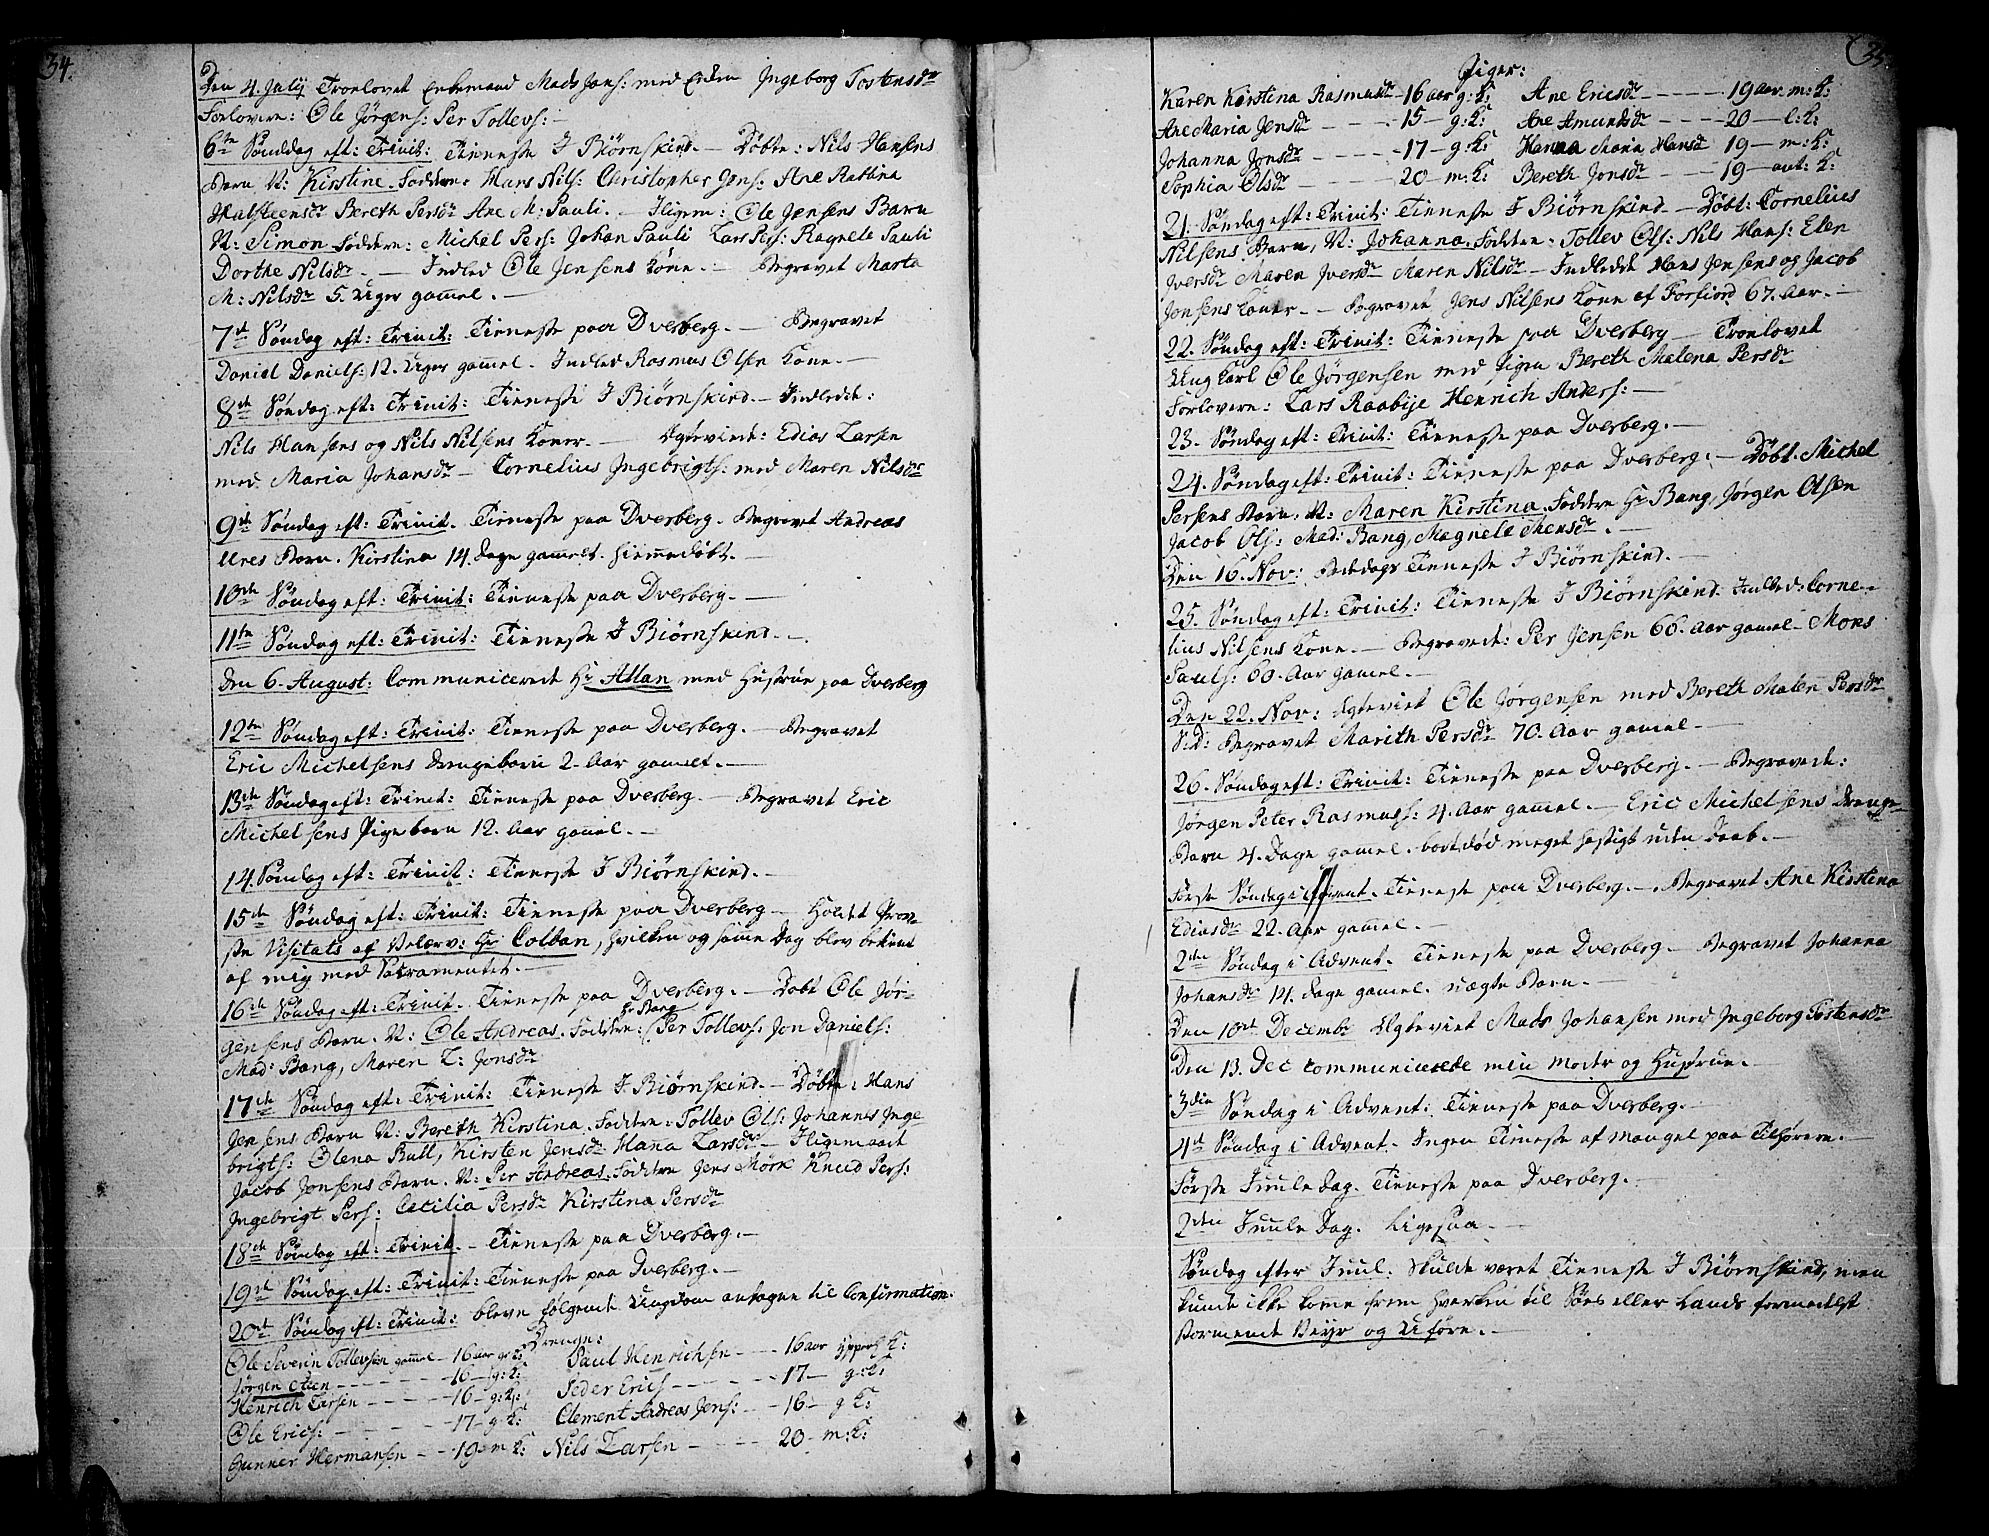 34.
Den 4. July Troelovet Enkemand Mads Jons: med Enken Ingeborg Tostensdr
Forlovere: Ole Jörgens: Per Tollevs:
6te Sönddag eft: Trinit: Tieneste I Biörnskind. – Döbte: Nils Hansens
Barn N: Kirstine. Faddere: Hans Nils: Christopher Jens: Ane
Halsteensdr Bereth Persdr Ane M: Pauli. – Iligem: Ole Jensens Barn
N: Simon Faddere: Michel Pers: Johan Pauli Lars Pers: Ragnele Pauli
Dorthe Nilsdr. – Indled Ole Jensens Kone. – Begravet Marta
M: Nilsdr 5. Uger gammel. –
7de Söndag eft: Trinit: Tieneste paa Dverberg. – Begravet
Daniel Daniels: 12. Uger gammel. Indled Rasmus Olsen Kone. –
8de Söndag eft: Trinit: Tieneste I Biörnskind. – Indledde:
Nils Hansens og Nils Nilsens Koner. – Egteviede: Edias Larsen
med Maria Johansdr – Cornelius Ingebrigts: med Maren Nilsdr
9de Söndag eft: Trinit. Tieneste paa Dverberg. Begravet Andreas
Ures Barn. Kirstina 14. Dage gammelt. hiemmedöbt. –
10de Söndag eft: Trinit: Tieneste paa Dverberg. –
11te Söndag eft: Trinit: Tieneste I Biörnskind. –
Den 6. August: Communicerede Hr Allan med Hustrue paa Dverberg
12te Söndag eft: Trinit: Tieneste paa Dverberg. – Begravet
Eric Michelsens Drengebarn 2. Aar gamelt. –
13de Söndag eft: Trinit: Tieneste paa Dverberg. – Begravet Eric
Michelsens Pigebarn 12. Aar gamel. –
14. Söndag eft: Trinit: Tieneste I Biörnskind. –
15de Söndag eft: Trinit: Tieneste paa Dverberg – Holdt Prov-
ste Visitats af Velærv: Hr Colban, hvilken og samme Dag blev betient
af mig med Sacramentet. –
16de Söndag eft: Trinit. Tieneste paa Dverberg. – Döbt Ole Jör-
gensens Barn. N: Ole Andreas. Faddere: Hr Bang Per Tollevs: Jon Daniels:
Mad: Bang, Maren L: Jonsdr
17de Söndag eft: Trinit: Tieneste I Biörnskind. – Döbte: Hans
Jensens Barn N: Bereth Kirstina. Faddere: Tollev Ols: Johannes Inge-
brigts: Olena Bull, Kirsten Jensdr Hana Larsdr – Iligemaade
Jacob Jonsens Barn. N: Per Andreas. Faddere Jens Mörk Knud Pers:
Ingebrigt Pers: Cecilia Persdr Kirstina Persdr
18de Söndag eft: Trinit. – Tieneste paa Dverberg. –
19de Söndag eft: Trinit: Tieneste paa Dverberg. –
20de Söndag eft: Trinit: bleve fölgende Ungdom antagne til Confirmation.
Drenge:
Ole Severin Tollevsen gammel – 16 aar g: K: Paul Henrichsen – 16 aar K:
Jörgen – 16 – g: K: Peder Erics – 17 – g: K:
Henrich Larsen – 16 – g: K: Clement Andreas Jens: – 16 – g K:
Ole Erics: – 17 – g: K: Nils Larsen – 20 – m: K:
Gunner Hermansen – 19 – m K:
35
Piger:
Karen Kirstina Rasmusdr – 16 aar g: K: Ane Ericsdr – 19 aar m: K:
Ane Maria Jensdr – 15 – g: K: Ane Amundsdr – 20 – l: K:
Johanna Jonsdr – 17 – g: K: Hanna Maria Hansd 19 – m: K:
Sophia Olsdr – 20 – m: K: Bereth Jonsdr – 19 – K:
21. Söndag eft: Trinit: Tieneste I Biörnskind – Döbt: Cornelius
Nilsens Barn, N: Johanna. Faddere: Tollev Ols: Nils Hans: Elen
Iversdr Maren Iversdr Maren Nilsdr – Indledde Hans Jensens og Jacob
Jonsens Koner. – Begravet Jens Nilsens Kone af Forfiord 67. Aar. –
22. Söndag eft: Trinit: Tieneste paa Dverberg – Troelovet
Ung Karl Ole Jörgensen med Pigen Bereth Malena Persdr
Forlovere: Lars Raabye Henrich Anders: –
23. Söndag eft: Trinit: Tieneste paa Dverberg. –
24. Söndag eft: Trinit: Tieneste paa Dverberg. – Döbt. Michel
Persens Barn. N: Maren Kirstina. Faddere Hr Bang, Jörgen Olsen
Jacob Ols: Mad: Bang, Magnele Mensdr. –
Den 16. Nov: Bededags Tieneste I Biörnskind. –
25. Söndag eft: Trinit: Tieneste I Biörnskind. Indled: Corne-
lius Nilsens Kone. – Begravede: Per Jensen 66. Aar gamel – Mons
Pauls: 60. Aar gamel. –
Den 22. Nov: Egteviet Ole Jörgensen med Bereth Malen Persdr
Begravet Marith Persdr 70. Aar gamel –
26. Söndag eft: Trinit: Tieneste paa Dverberg. – Begravede:
Jörgen Peter Rasmuss: 4. Aar gamel. – Eric Michelsens Drenge-
Barn 4. Dage gamel. bortdöd meget hastigt uden Daab. –
Förste Söndag i Advent. Tieneste paa Dverberg. – Begravet Ane Kirstina
Ediasdr 22. Aar gammel. –
2den Söndag i Advent. Tieneste paa Dverberg. – Begravet Johanna
Johansdr 14. Dage gamel. uægte Barn. –
Den 10de Decembr Egteviet Mads Johansen med Ingeborg Tostensdr
Den 13. Dec communicerede min Moder og Hustrue. –
3die Söndag i Advent: Tieneste paa Dverberg. –
4de Söndag i Advent. Ingen Tieneste af Mangel paa Tilhörere. –
Förste Juule Dag. Tieneste paa Dverberg. –
2den Juule Dag. Ligesaa. –
Söndag efter Juul: skulde været Tieneste I Biörnskind, men
kunde ikke komme frem hverken til Söes eller Lands formedelst
stormende Veyr og Uföre. –